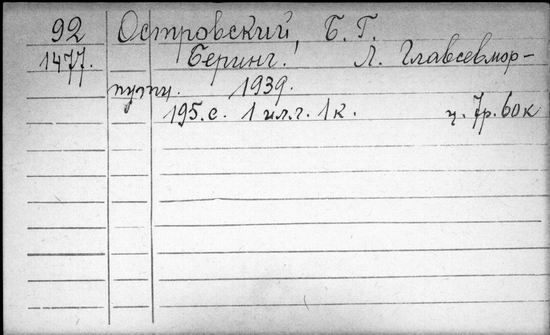 92 Островский, Б. Г.
1477. Беринг. Л. Главсевмор-
пути. 1939.
195.с. 1 ил.г. 1к. ц. 7р. 60к